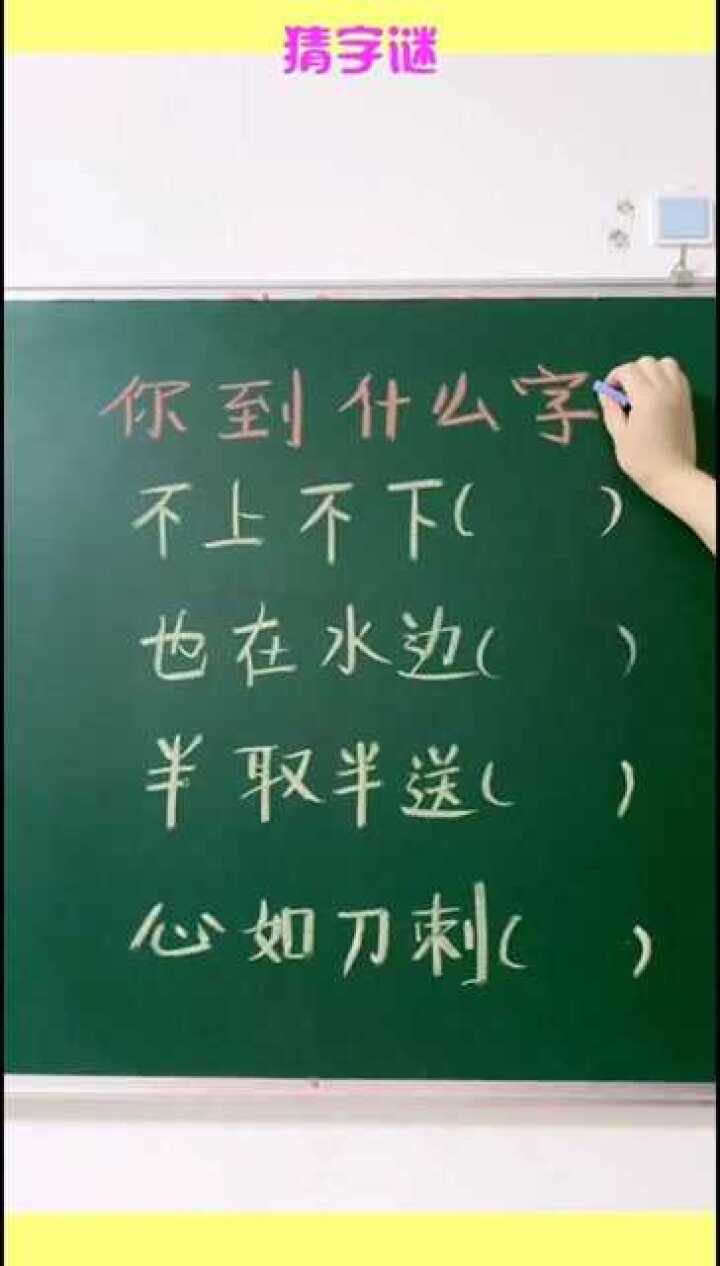 猜字谜
你到什么字
不上不下( )
也在水边( )
半取半送( )
心如刀刺( )